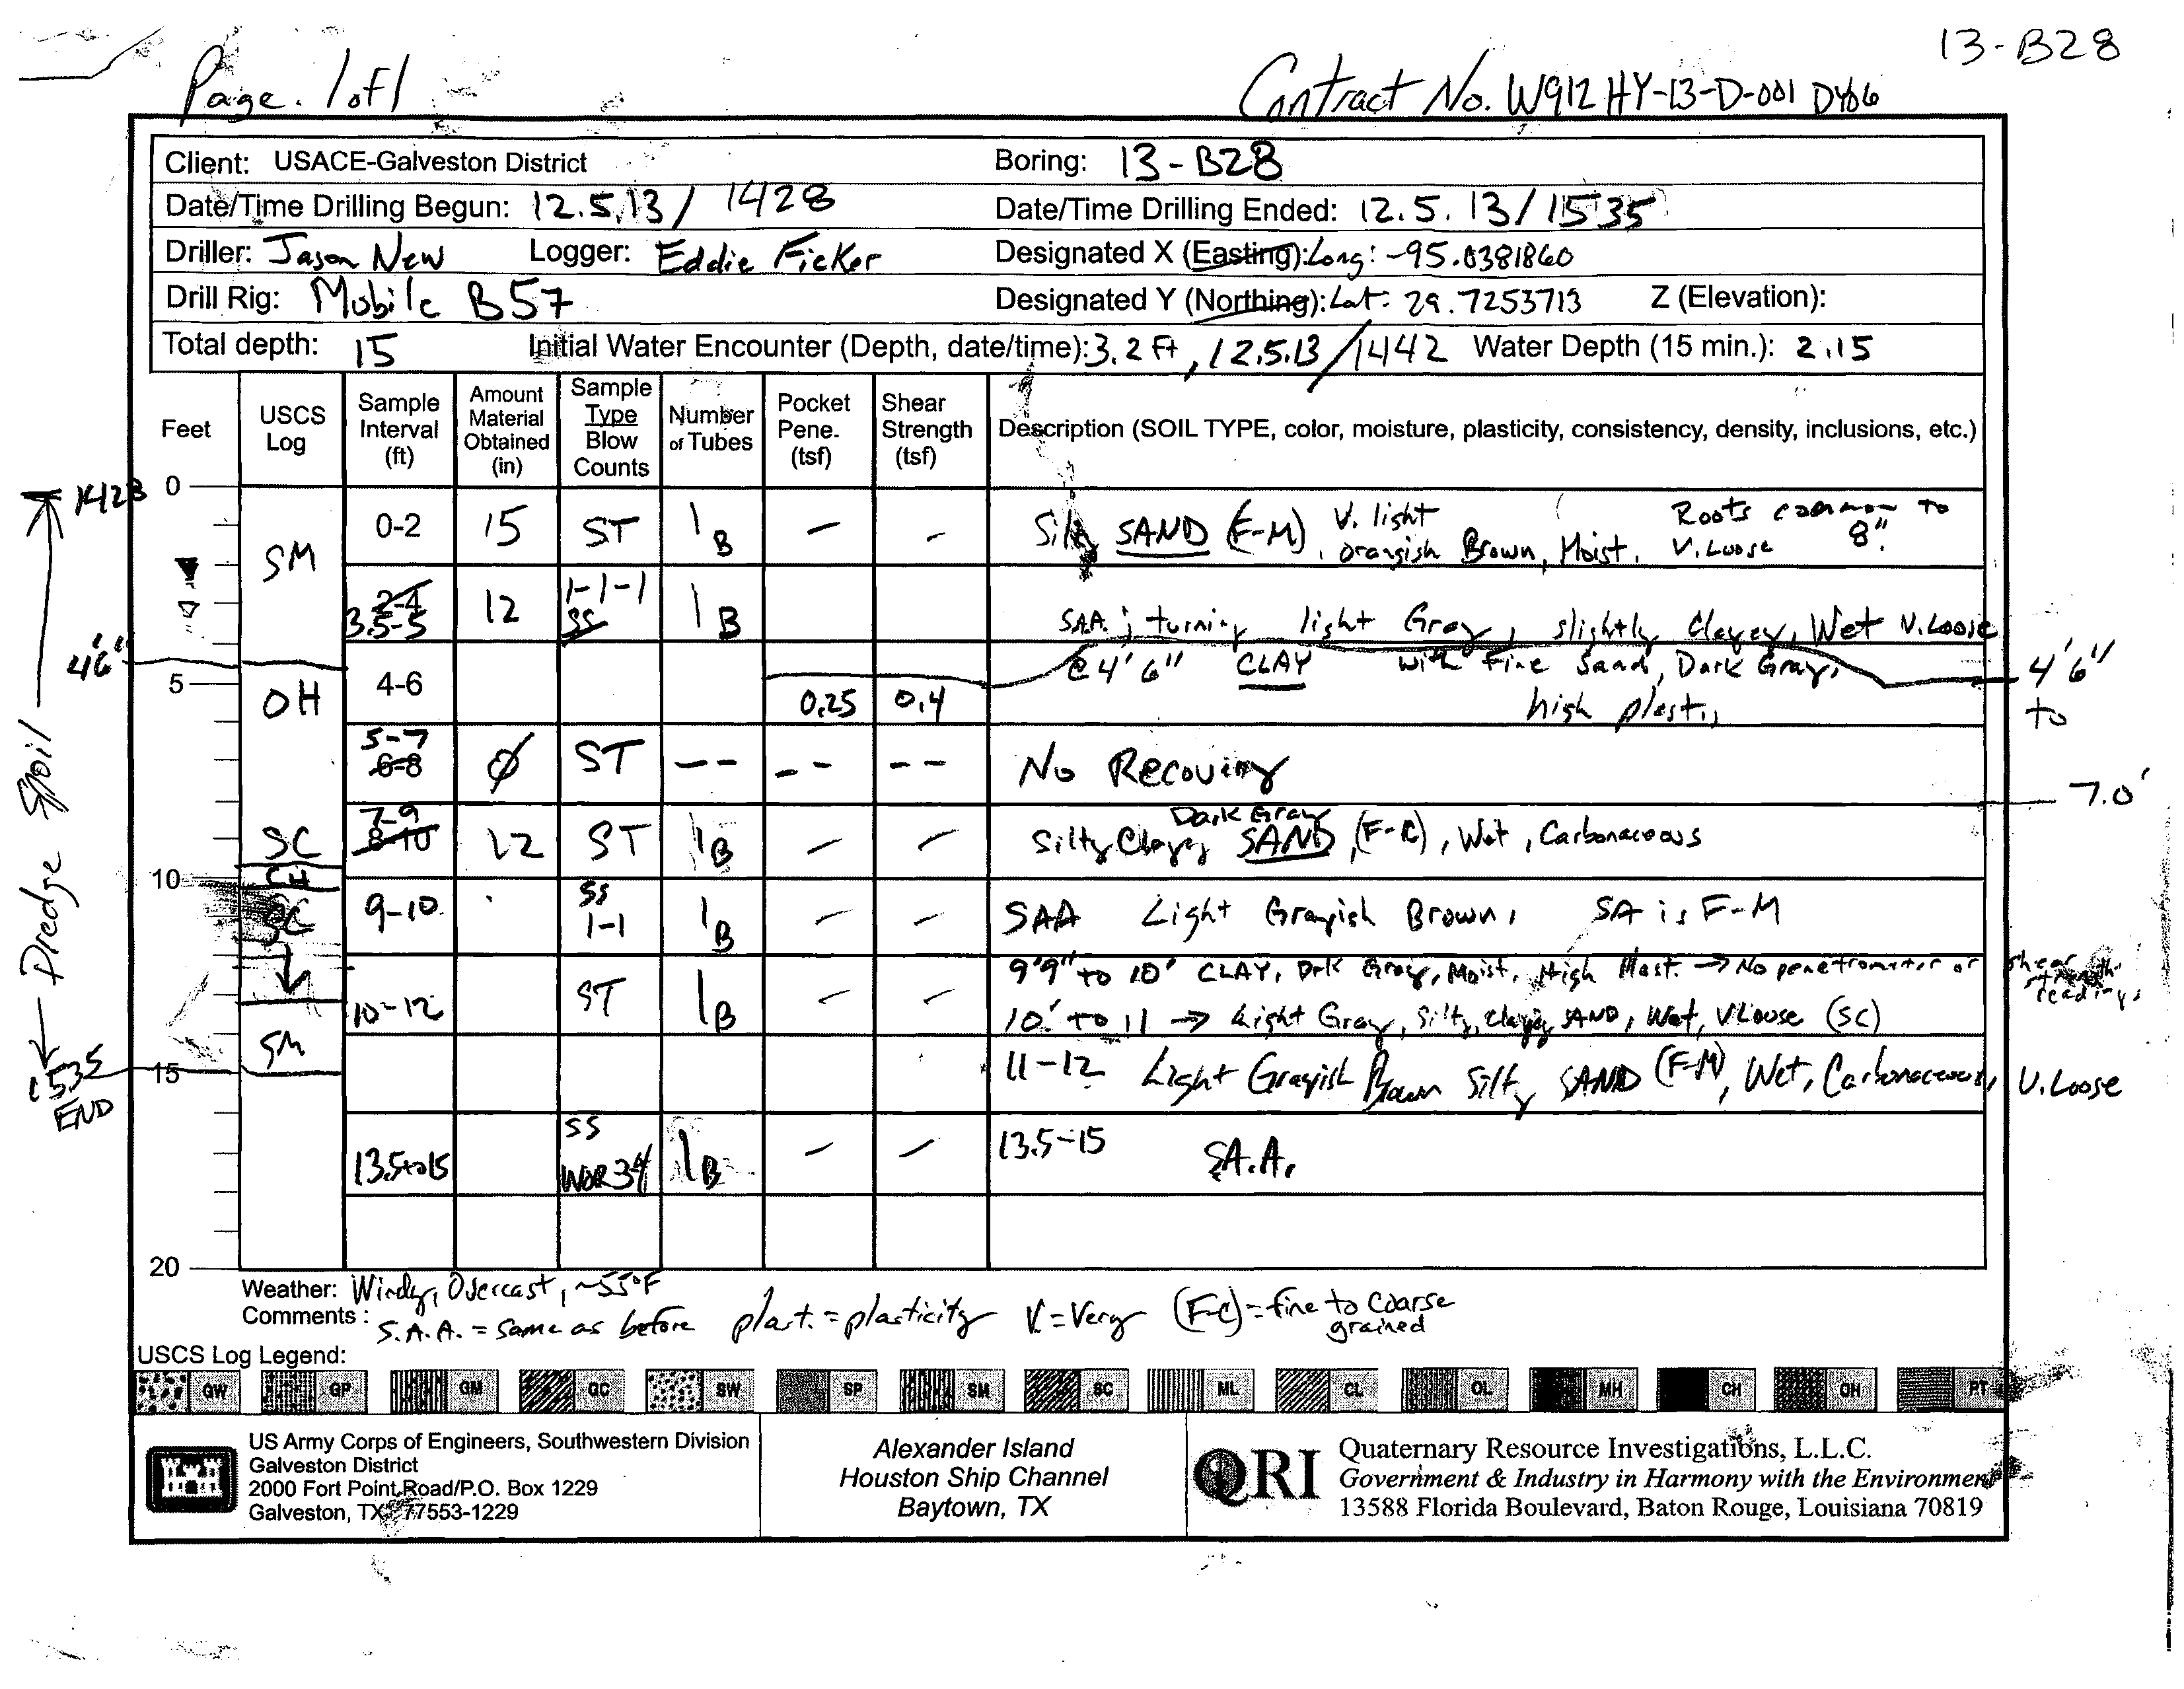 13-B28
Page. 1 of 1
Contract No. W912HY-13-D-001 DY06
Client: USACE-Galveston District Boring: 13-B28
Date/Time Drilling Begun: 12.5.13 / 1428 Date/Time Drilling Ended: 12.5.13/1535
Driller: Jason New Logger: Eddie Ficker Designated X (Easting): Long: -95.0381860
Drill Rig: Mobile B57 Designated Y (Northing): Lat: 29.7253713 Z (Elevation):
Total depth: 15 Initial Water Encounter (Depth, date/time): 3.2 Ft, 12.5.13/1442 Water Depth (15 min.): 2.15
Feet
USCS Log
Sample Interval (ft)
Amount Material Obtained (in)
Sample Type Blow Counts
Number of Tubes
Pocket Pene. (tsf)
Shear Strength (tsf)
Description (SOIL TYPE, color, moisture, plasticity, consistency, density, inclusions, etc.)
1428 0
SM 0-2 15 ST 1 B – – Silty SAND (F-M), V. light orangish Brown, Moist, V. Loose Roots common to 8".
2-4 3.5-5 12 1-1-1 SS 1 B S.A.A. ; turning light Gray, slightly clayey, Wet V. Loose
4'6" 5 OH 4-6 0.25 0.4 @ 4'6" CLAY with Fine Sand, Dark Gray, high plast., 4'6" to
5-7 6-8 Ø ST -- -- -- No Recovery
7.0'
SC 7-9 8-10 12 ST 1 B – – Silty Clayey SAND, Dark Gray (F-C), Wet, Carbonaceous
10 CH
SC 9-10 SS 1-1 1 B – – SAA Light Grayish Brown, SA is F-M
9'9" to 10' CLAY, Drk Gray, Moist, High Plast. → No penetrometer or shear strength readings
10-12 ST 1 B – – 10' to 11 → Light Gray, Silty, clayey SAND, Wet, V Loose (SC)
SM
15 11-12 Light Grayish Brown Silty SAND (F-M), Wet, Carbonaceous, V. Loose
13.5 to 15 SS WOR34 1 B – – 13.5-15 S.A.A.
20
Dredge Spoil
1535 END
Weather: Windy, Overcast, ~55°F
Comments: S.A.A. = Same as before plast. = plasticity V. = Very (F-C) = fine to Coarse grained
USCS Log Legend:
GW GP GM GC SW SP SM SC ML CL OL MH CH OH PT
US Army Corps of Engineers, Southwestern Division
Galveston District
2000 Fort Point Road/P.O. Box 1229
Galveston, TX 77553-1229
Alexander Island
Houston Ship Channel
Baytown, TX
QRI
Quaternary Resource Investigations, L.L.C.
Government & Industry in Harmony with the Environment
13588 Florida Boulevard, Baton Rouge, Louisiana 70819